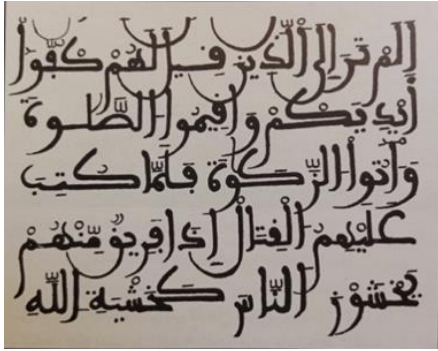 أَلَمْ تَرَ إِلَى ٱلَّذِينَ قِيلَ لَهُمْ كُفُّوٓا۟
أَيْدِيَكُمْ وَأَقِيمُوا۟ ٱلصَّلَوٰةَ
وَءَاتُوا۟ ٱلزَّكَوٰةَ فَلَمَّا كُتِبَ
عَلَيْهِمُ ٱلْقِتَالُ إِذَا فَرِيقٌ مِّنْهُمْ
يَخْشَوْنَ ٱلنَّاسَ كَخَشْيَةِ ٱللَّهِ